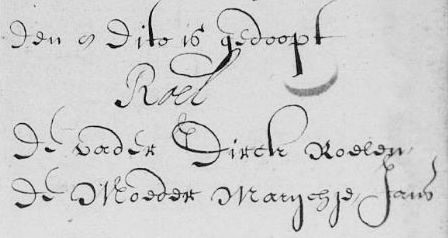 den 9 dito is gedoopt
Roel
de vader Dirck Roelen
de Moeder Marijchje Jans